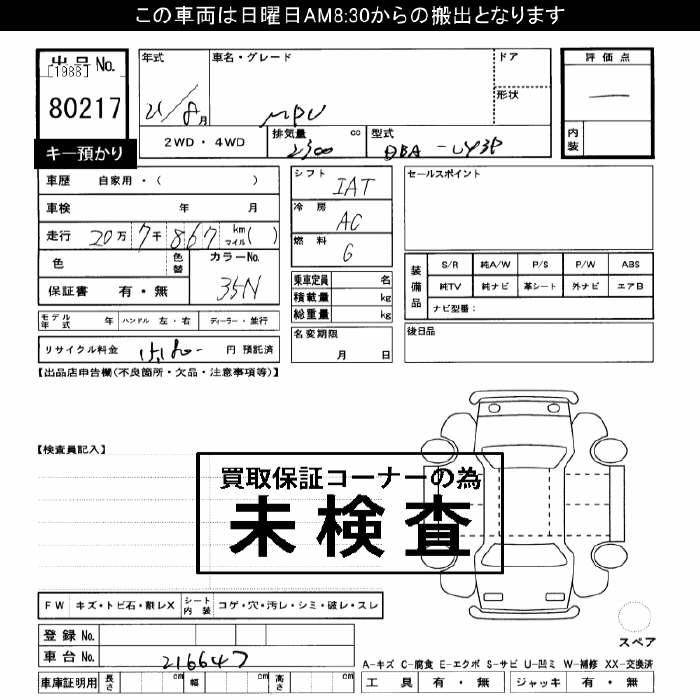 この車両は日曜日AM8:30からの搬出となります
出品No.
[1988]
80217
キー預かり
年式
21/8月
車名・グレード
MPV
ドア
形状
2WD・4WD
排気量 cc
2300
型式
DBA-LY3P
評価点
一
内装
車歴 自家用・( )
車検 年 月
走行 20万7千867 km マイル( )
色 色替
カラーNo.
35N
保証書 有・無
シフト
IAT
冷房
AC
燃料
G
乗車定員 名
積載量 kg
総重量 kg
名変期限
月 日
セールスポイント
装備品
S/R 純A/W P/S P/W ABS
純TV 純ナビ 革シート 外ナビ エアB
ナビ型番:
後日品
モデル年式 年 ハンドル 左・右 ディーラー・並行
リサイクル料金 15,180- 円 預託済
【出品店申告欄(不良箇所・欠品・注意事項等)】
【検査員記入】
買取保証コーナーの為
未検査
FW キズ・トビ石・割レX シート内装 コゲ・穴・汚レ・シミ・破レ・スレ
登録No.
車台No. 216647
車庫証明用 長さ cm 幅 cm 高さ cm
スペア
A-キズ C-腐食 E-エクボ S-サビ U-凹ミ W-補修 XX-交換済
工具 有・無 ジャッキ 有・無